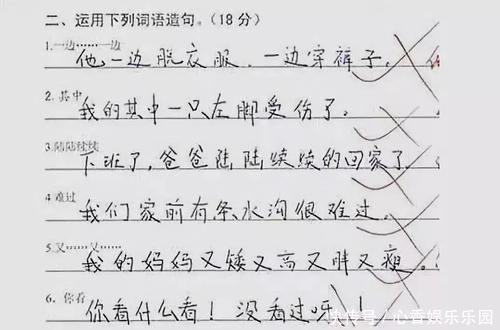 二、运用下列词语造句。(18分)
1.一边……一边
他一边脱衣服,一边穿裤子。
2. 其中
我的其中一只左脚受伤了。
3.陆陆续续
下班了,爸爸陆陆续续的回家了。
4.难过
我们家前有条水沟很难过。
5.又……又……
我的妈妈又矮又高又胖又瘦。
6. 你看
你看什么看!没看过呀!
快传号/心香娱乐乐园